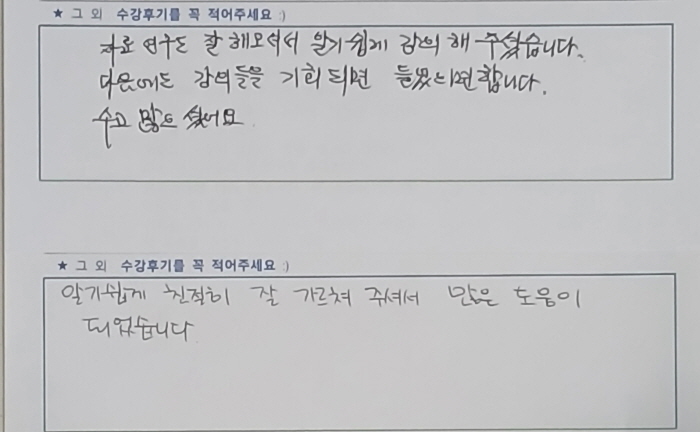 ★ 그 외 수강후기를 꼭 적어주세요 :)
자료 연구도 잘 해오셔서 알기쉽게 강의 해 주셨습니다.
다음에도 강의 들을 기회 되면 들었으면 합니다.
수고 많으셨어요
★ 그 외 수강후기를 꼭 적어주세요 :)
알기쉽게 친절히 잘 가르쳐 주셔서 많은 도움이
되었습니다